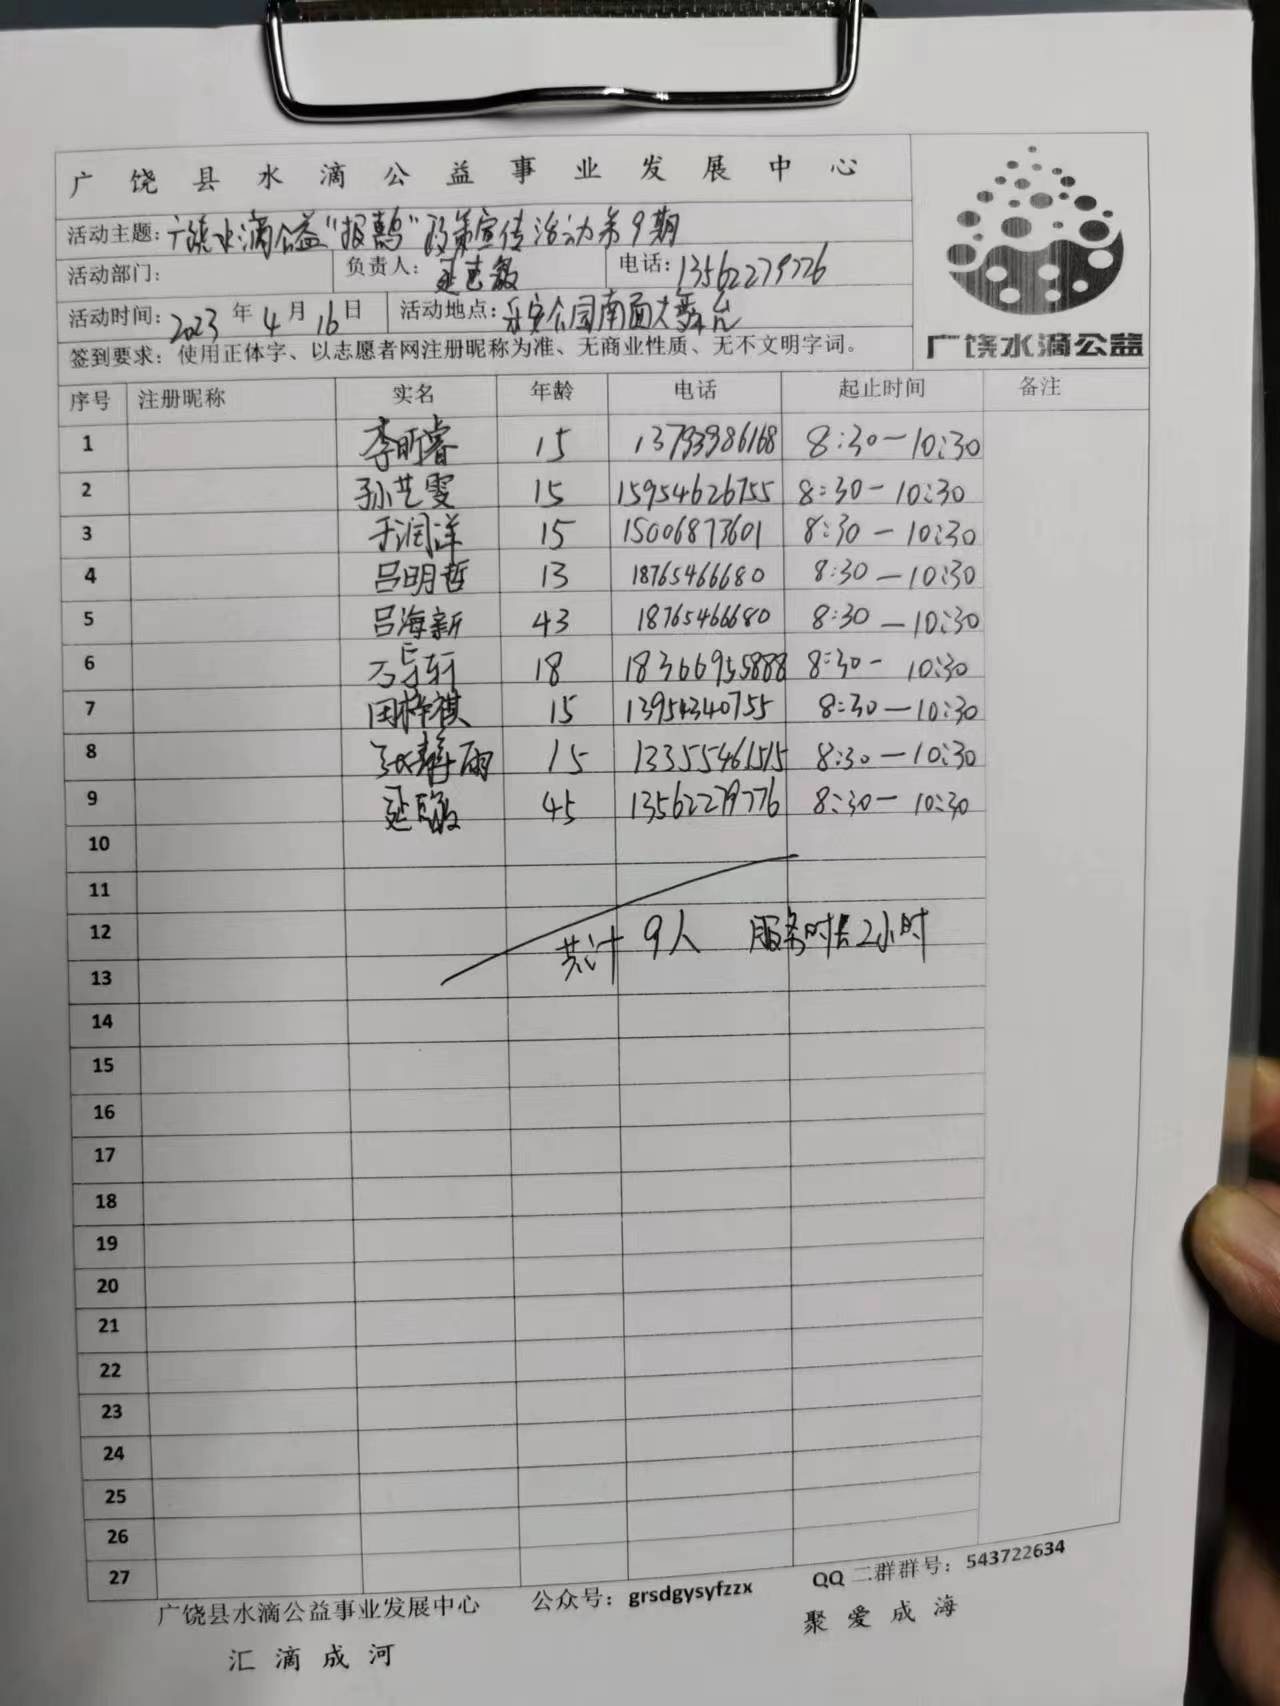 广饶县水滴公益事业发展中心
活动主题：广饶水滴公益"报鹊"政策宣传活动第9期
活动部门： 负责人： 电话：13562279776
活动时间：2023年4月16日 活动地点：乐安公园南面大舞台
签到要求：使用正体字、以志愿者网注册昵称为准、无商业性质、无不文明字词。
广饶水滴公益
序号 注册昵称 实名 年龄 电话 起止时间 备注
1 李昕睿 15 13793986168 8:30-10:30
2 孙艺雯 15 15954626755 8:30-10:30
3 于润洋 15 15006873601 8:30-10:30
4 吕明哲 13 18765466680 8:30-10:30
5 吕海新 43 18765466680 8:30-10:30
6 18 18366955888 8:30-10:30
7 田梓祺 15 13954340755 8:30-10:30
8 张静雨 15 13355461515 8:30-10:30
9 45 13562279776 8:30-10:30
10
11
12 共计 9人 服务时长2小时
13
14
15
16
17
18
19
20
21
22
23
24
25
26
27
广饶县水滴公益事业发展中心 公众号：grsdgysyfzzx QQ二群群号：543722634
汇滴成河 聚爱成海